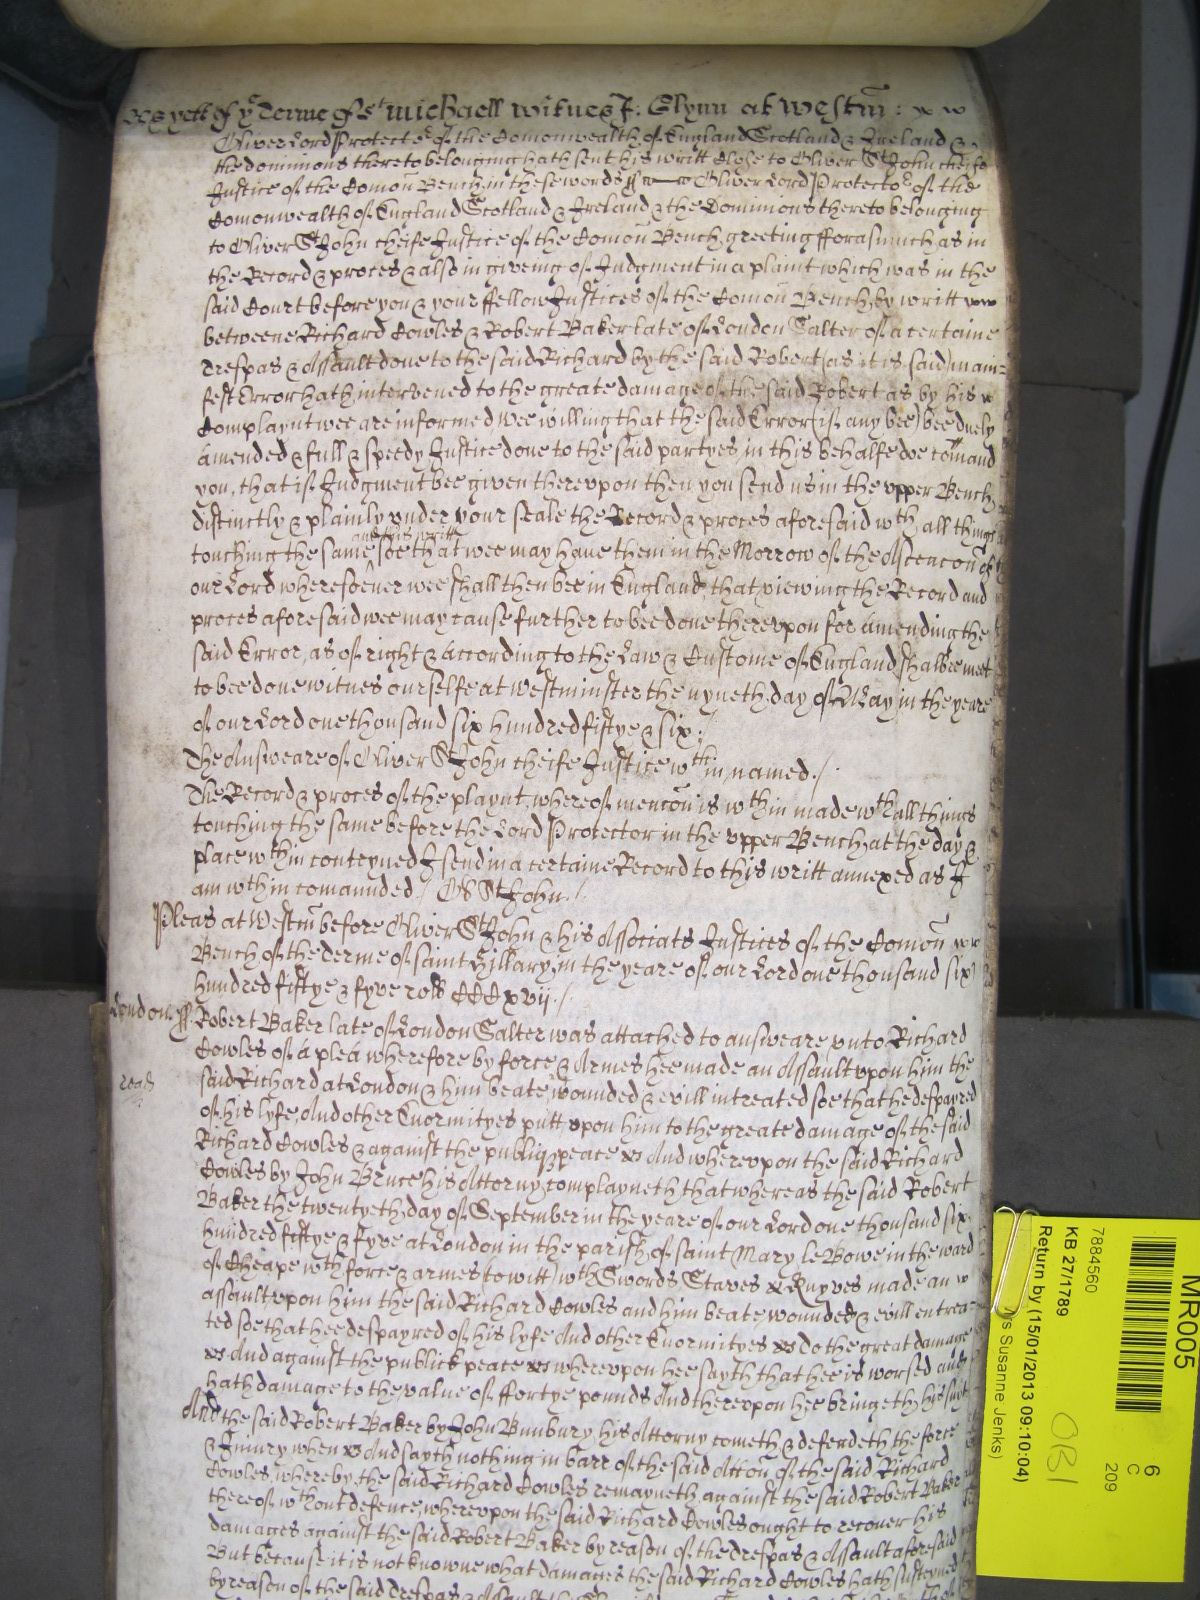 As yett of ye Terme of St Michaell witnes J: Glynn at Westm̃:
Oliver Lord Protector of the Comonwealth of England Scotland & Ireland &
the dominions thereto belonging hath sent his writt close to Oliver St John cheife
Justice of the Comoñ Bench in these words ss Oliver Lord Protector of the
Comonwealth of England Scotland & Ireland & the Dominions thereto belonging
to Oliver St John cheife Justice of the Comoñ Bench greeting fforasmuch as in
the Record & proces & also in giveing of Judgment in a plaint which was in the
said Court before you & your ffellow Justices of the Comoñ Bench by writt
betweene Richard Cowles & Robert Baker late of London Salter of a certaine
Trespas & Assault done to the said Richard by the said Robert (as it is said) mani=
fest Error hath intervened to the greate damage of the said Robert as by his
Complaynt wee are informed Wee willing that the said Error (if any bee) bee duely
amended & full & speedy Justice done to the said partyes in this behalfe doe com̃and
you, that if Judgment bee given thereupon then you send us in the upper Bench
distinctly & plainly under your seale the Record & proces aforesaid wth all things
touching the same and this writt soe that wee may have them in the Morrow of the Ascencon of
our Lord wheresoever wee shall then bee in England, that viewing the Record and
proces aforesaid wee may cause further to bee done thereupon for amending the
said Error, as of right & according to the Law & Custome of England shalbee meet
to bee done witnes ourselfe at Westminster the nyneth day of May in the yeare
of our Lord one thousand six hundred fiftye & six:/
The Answeare of Oliver St John cheife Justice wthin named./
The Record & proces of the playnt, whereof mencoñ is wthin made wth all things
touching the same before the Lord Protector in the upper Bench at the day &
place wthin conteyned I send in a certaine Record to this writt annexed as I
am wthin comaunded / Ol St John./
Pleas at Westm̃ before Oliver St John & his Associats Justices of the Comoñ
Bench of the Terme of saint Hillary, in the yeare of our Lord one thousand six
hundred fiftye & fyve roll CCCxvij./
London ss. Robert Baker late of London Salter was attached to answeare unto Richard
Cowles of a plea wherefore by force & Armes hee made an Assault upon him the
said Richard at London & him beate, wounded & evill intreated soe that he despayred
of his lyfe, And other Enormityes putt upon him to the greate damage of the said
Richard Cowles & against the publiq peace &c And whereupon the said Richard
Cowles by John Bruce his Attorny complayneth, that whereas the said Robert
Baker the twentyeth day of September in the yeare of our Lord one thousand six
hundred fiftye & fyve at London in the parish of saint Mary le Bowe in the ward
of Cheape wth force & armes to witt) wth Swords Staves & Knyves made an
assault upon him the said Richard Cowles and him beate, wounded & evill entrea=
ted soe that hee despayred of his lyfe And other Enormityes &c To the great damage
&c And against the publick peace &c whereupon hee sayth that hee is worsed and
hath damage to the value of fortye pounds And thereupon hee bringeth his suit
And the said Robert Baker by John Bunbury his Attorny cometh & defendeth the force
& Iniury when &c And sayth nothing in barr of the said Accoñ of the said Richard
Cowles, whereby the said Richard Cowles remayneth against the said Robert Baker
thereof wthout defence, whereupon the said Richard Cowles ought to recover his
damages against the said Robert Baker by reason of the Trespas & Assault aforesaid
But because it is not knowne what damages the said Richard Cowles hath susteyned
by reason of the said Trespas & Assault
MR005
6
C
209
7884560
KB 27/1789
Return by (15/01/2013 09:10:04)
Susanne Jenks)